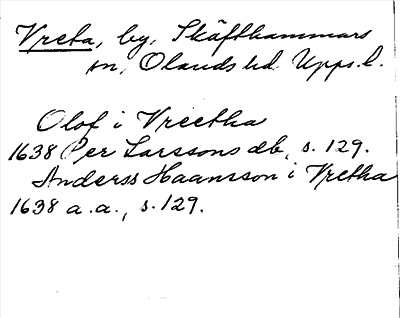 Vreta, by, Skäfthammars
sn, Olands hd. Upps. l.
Olof i Vreetha
1638 Per Larssons db, s. 129.
Anderss Haansson i Vretha
1638 a.a., s. 129.